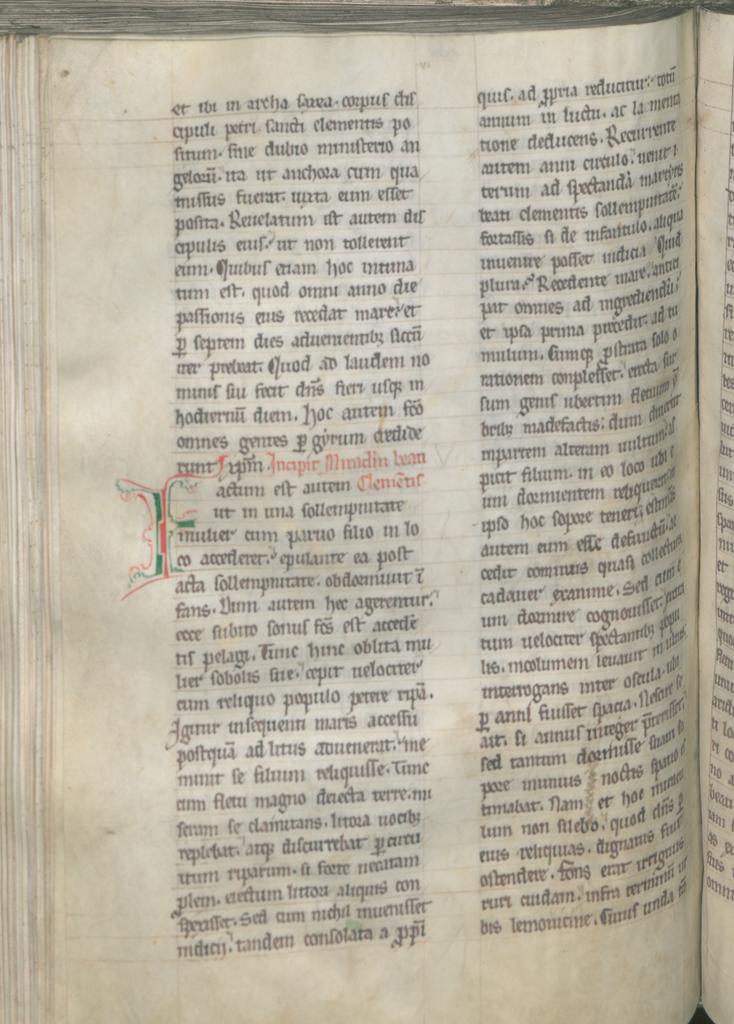 et ibi in archa saxea. corpus dis
cipuli petri sancti clementis po
situm. sine dubio ministerio an
geloꝝ. ita ut anchora cum qua
missus fuerat. iuxta eum esset
posita. Reuelatum est autem dis
cipulis eius. ut non tollerent
eum. Quibus etiam hoc intima
tum est. quod omni anno die
passionis eius recedat mare. et
ꝑ septem dies aduenientibꝫ siccū
iter prebeat. Quod ad laudem no
minis sui fecit dn̄s fieri usqꝫ in
hodiernū diem. Hoc autem fc̄o
omnes gentes ꝑ gyrum credide
runt xp̄m. Incipit Miraclm beati
Factum est autem Clemētis
ut in una sollempnitate
mulier cum paruo filio in lo
co accederet. epulante ea post
acta sollempnitate. obdormiuit ī
fans. Dum autem hec agerentur.
ecce subito sonus fc̄s est accedē
tis pelagi. Tunc hinc oblita mu
lier sobolis sue. cepit uelociter
cum reliquo populo petere ripā.
Igitur insequenti maris accessu
postquā ad litus aduenerat. me
minit se filium reliquisse. Tunc
cum fletu magno deiecta terre. mi
seram se clamitans. litora uocibꝫ
replebat. atqꝫ discurrebat ꝑ circu
itum riparum. si forte necatam
plem. eiectum littori aliquis con
sperisset. Sed cum nichil inuenisset
indicij. tandem consolata a ꝓpi
quis. ad ꝓpria reducitur. totū
annum in luctu. ac lamenta
tione deducens. Recurrente
autem anni circulo. uenit i
terum ad spectandā martyris
beati clementis sollempnitatē.
fortassis si de infantulo. aliqua
inuenire posset indicia. Quid
plura. Recedente mare. antici
pat omnes ad ingrediendū.
et ipsa prima precedit. ad tu
mulum. Cumqꝫ ꝓstrata solo o
rationem conplesset. erecta sur
sum genis ubertim fletuum
bribꝫ madefactis. dum diuertit
inpartem alteram uultum. as
picit filium. in eo loco ubi e
um dormientem reliquerat
ipso hoc sopore teneri. estimās
autem eum esse defunctū. ac
cedit cominus quasi collectura
cadauer exanime. Sed cum e
um dormire cognouisset.
tum uelociter spectantibꝫ popu
lis. incolumem leuauit in ulnis.
interrogans inter oscula. ubi
ꝑ anni fuisset spacia. Nescire se
ait. si annus integer p̄terisset.
sed tantum dormisse suaui so
pore unius noctis spatio es
timabat. Nam et hoc miracu
lum non silebo. quod dn̄s ꝑ
eius reliquias. dignatus fuit
ostendere. Fons erat irriguus
ruri cuidam. infra terminū ur
bis lemouicine. Cuius unda